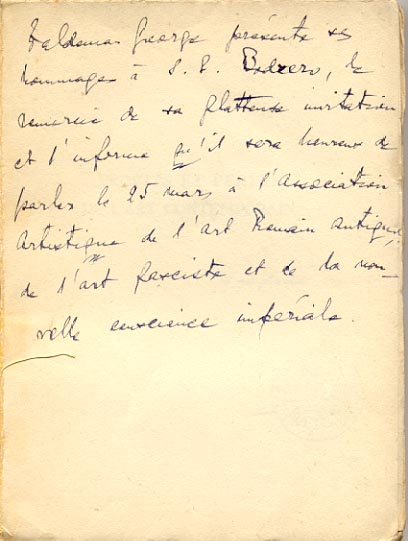 Valdemar George présente ses
hommages à S. E. Bodrero, le
remercie de sa flatteuse invitation
et l'informe qu'il sera heureux de
parler le 25 mars à l'Association
Artistique de l'art Romain antique,
de l'art fasciste et de la nou-
velle conscience impériale.